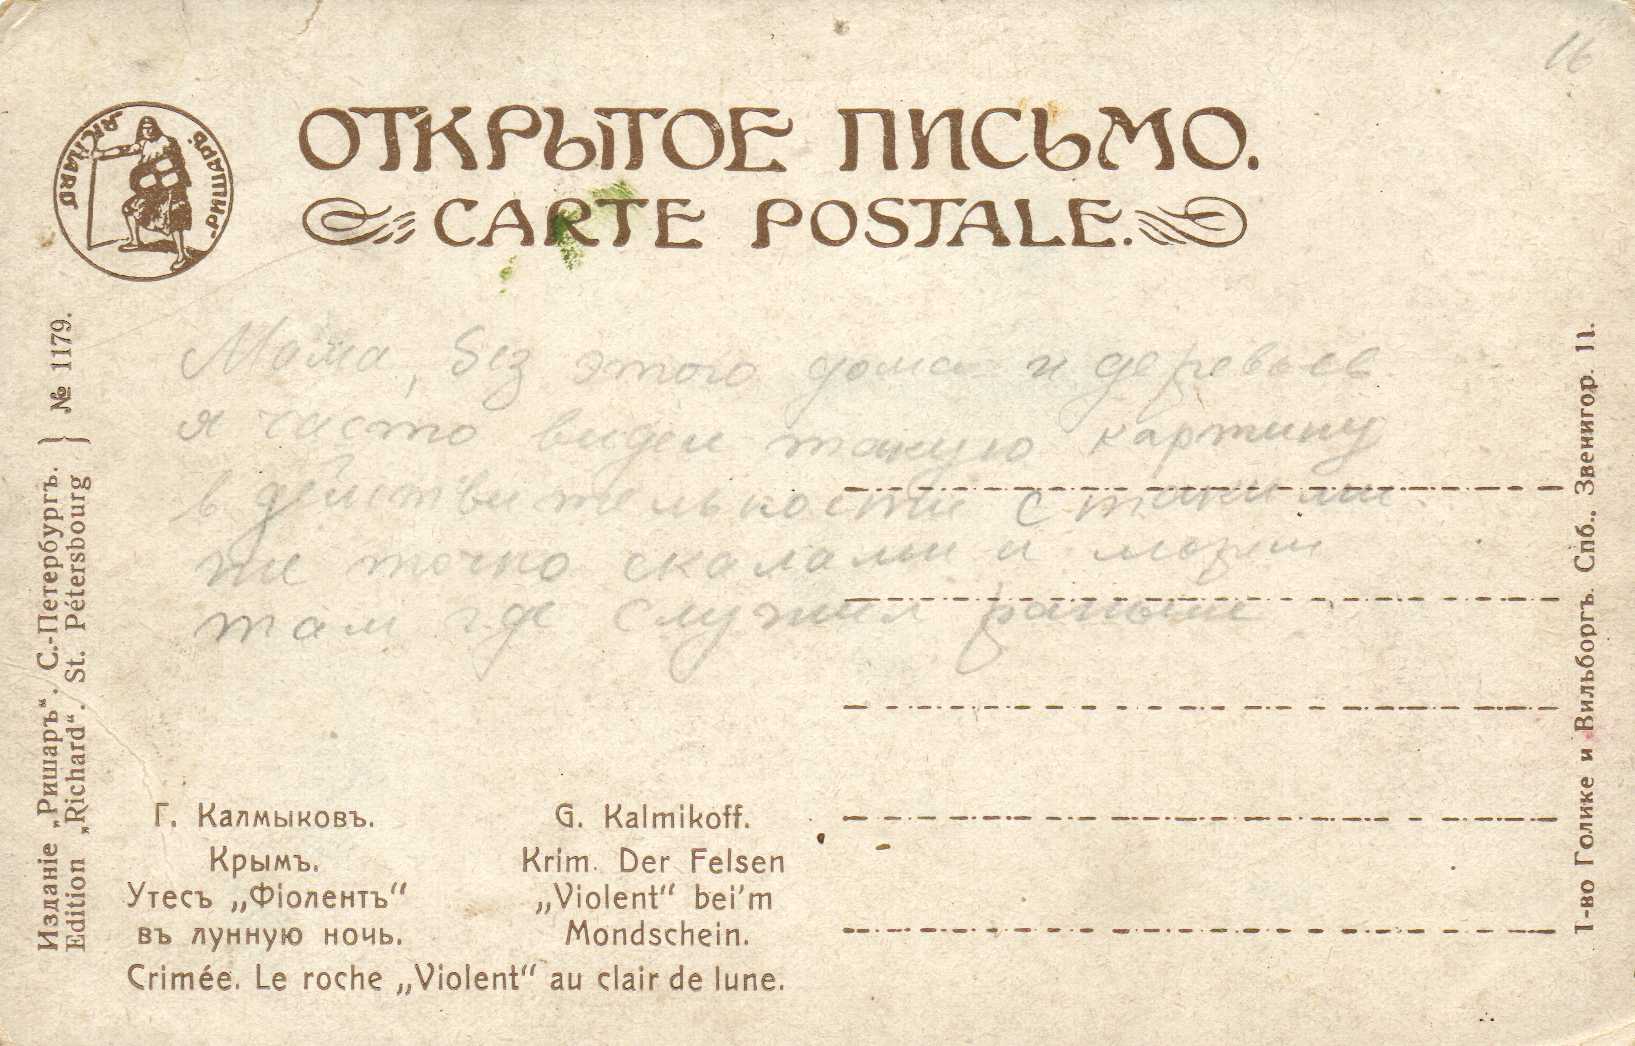 16
ОТКРЫТОЕ ПИСЬМО.
CARTE POSTALE.
„РИШАРЪ“
„RICHARD“
Мама, без этого дома и деревьев
я часто видел такую картину
в действительности с такими
же точно скалами и морем
там где служил раньше
Изданіе „Ришаръ“. С.-Петербургъ. } № 1179.
Edition „Richard“. St. Pétersbourg
Г. Калмыковъ.
Крымъ.
Утесъ „Фіолентъ“
въ лунную ночь.
G. Kalmikoff.
Krim. Der Felsen
„Violent“ bei'm
Mondschein.
Crimée. Le roche „Violent“ au clair de lune.
Т-во Голике и Вильборгъ. Спб., Звенигор. 11.